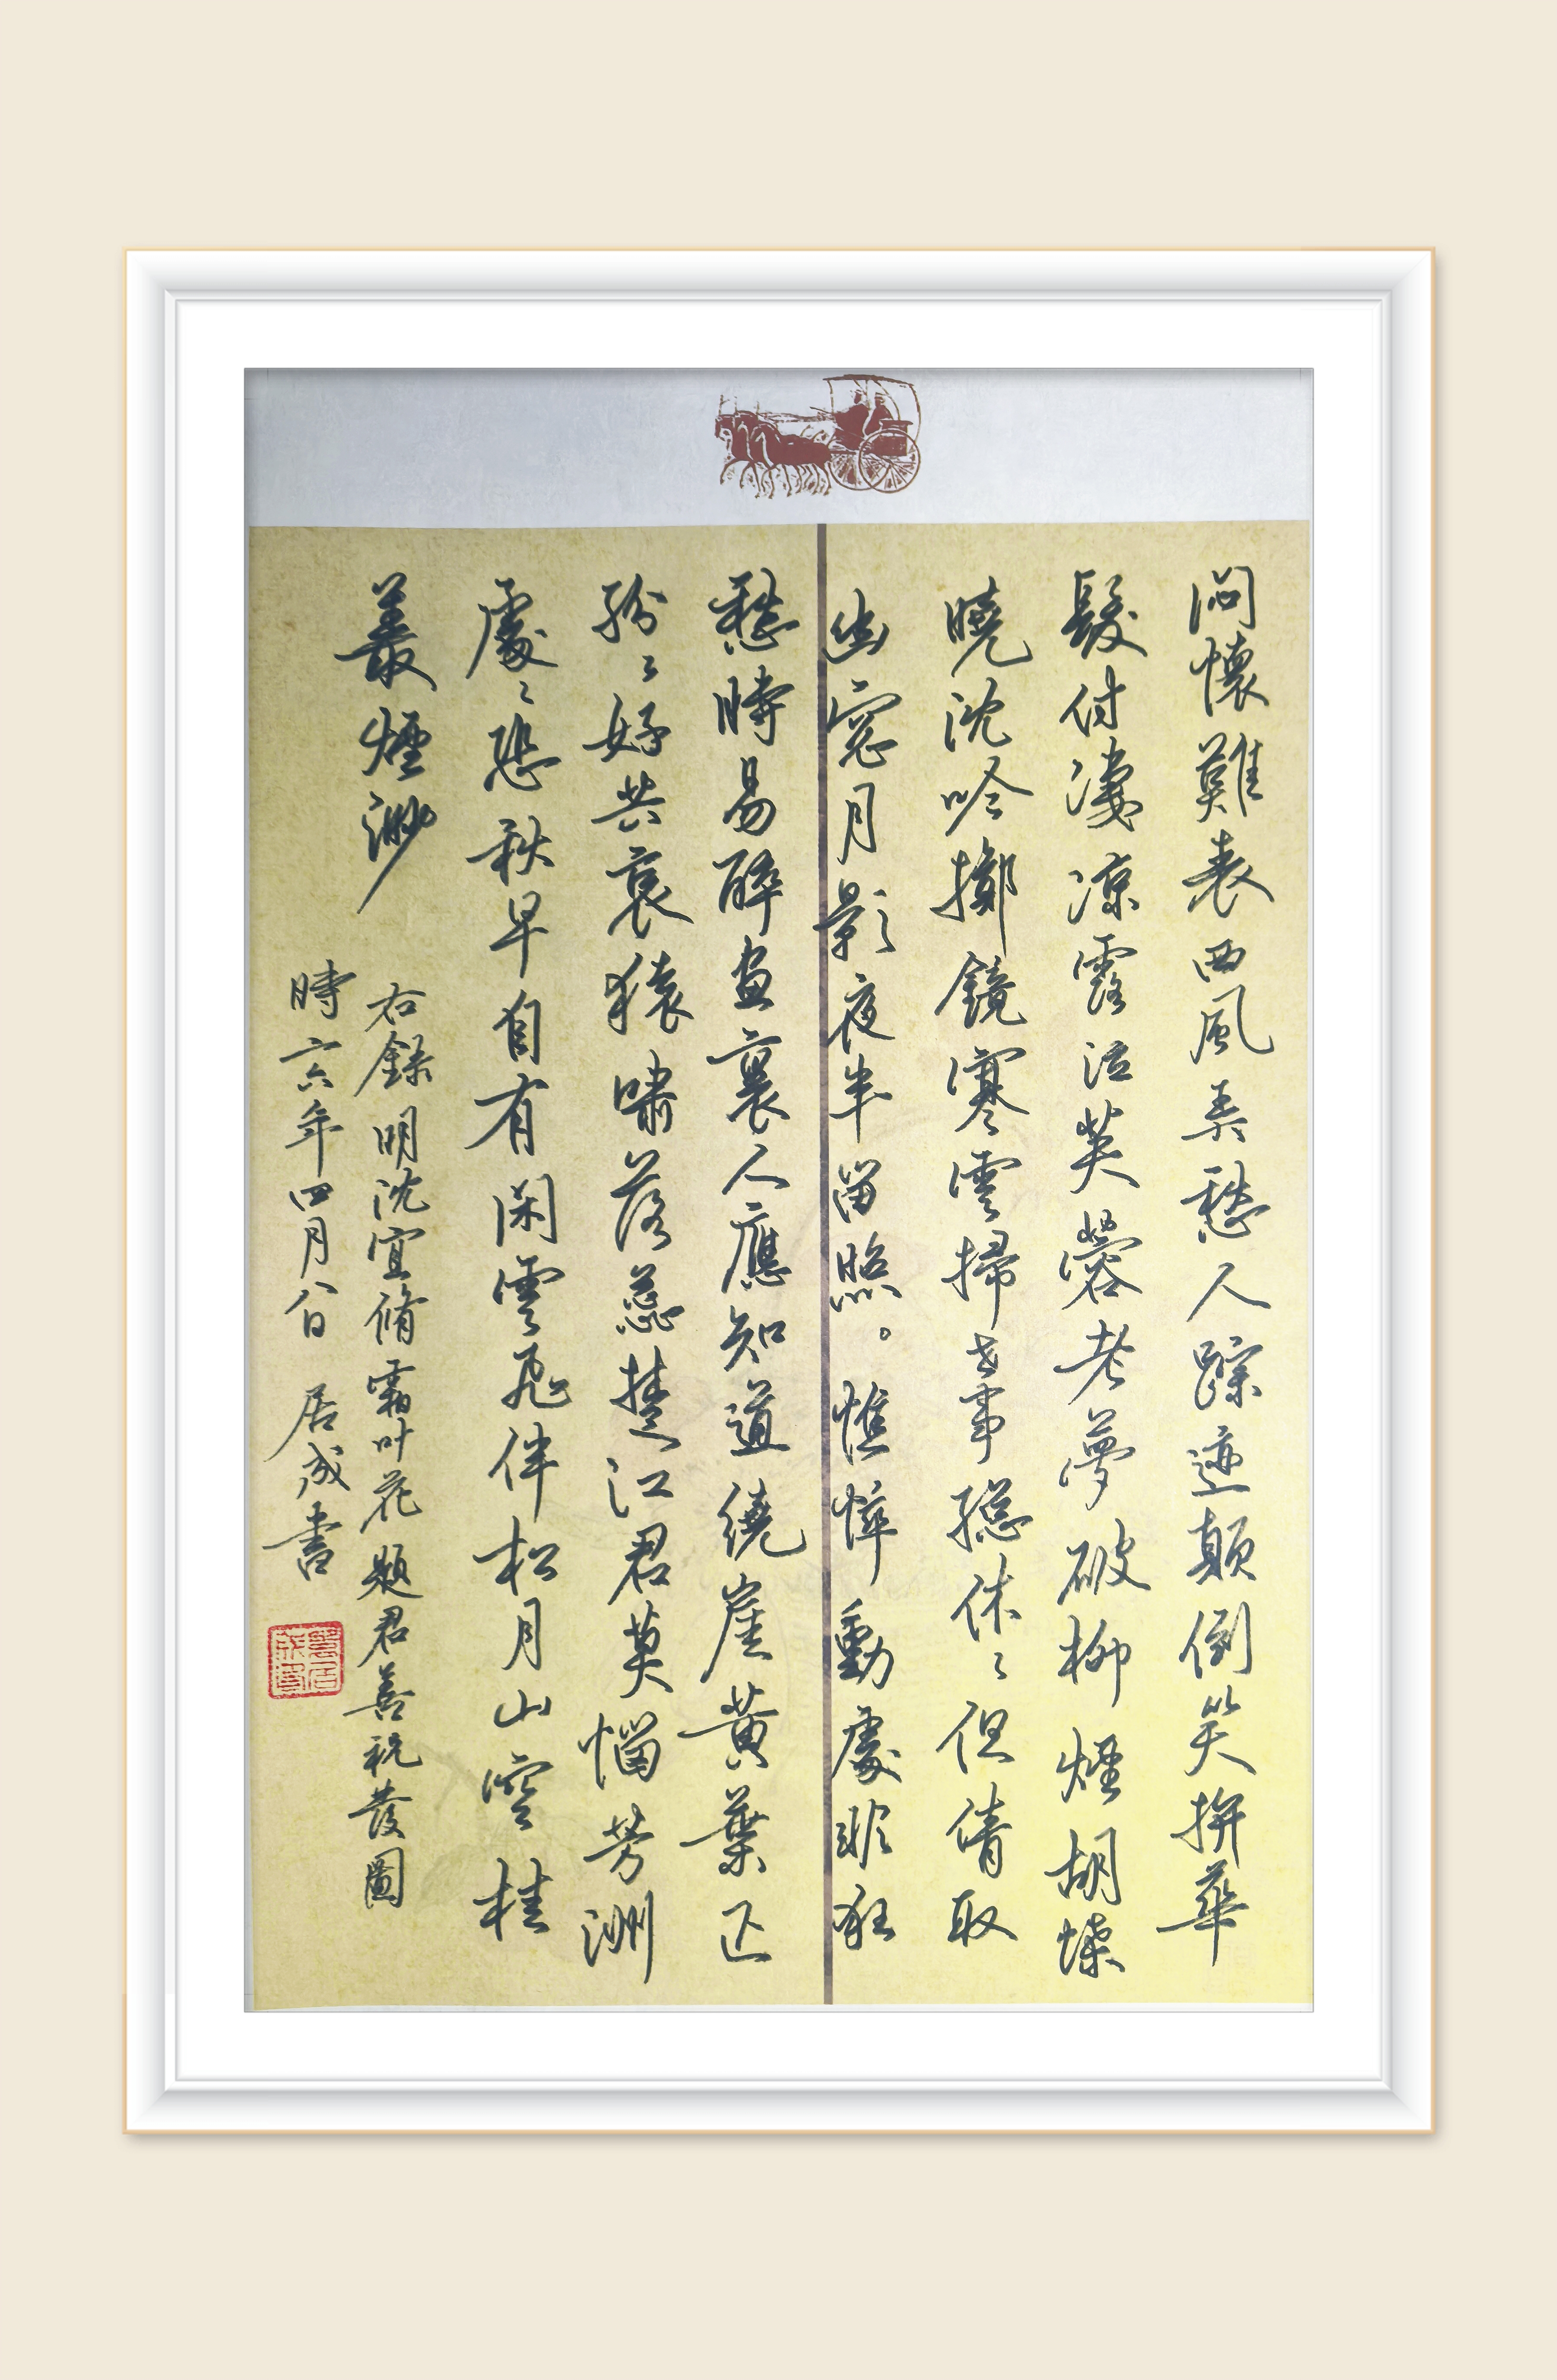 悶懷難表西風弄愁人蹤迹顛倒笑拚華
髮付淒凉露泣芙蓉老夢破柳煙胡懆
曉沈吟擲鏡寒雲掃世事總休〻但倩取
幽窓月影夜半留照。憔悴動處非狂
愁時易醉畫裏人應知道繞崖黃葉正
紛〻好共哀猿嘯落蕊楚江君莫惱芳洲
處〻悲秋早自有閑雲飛伴松月山空桂
叢煙渺
右錄明沈宜脩霜叶花題君善祝髮圖
時六年四月八日 居成書